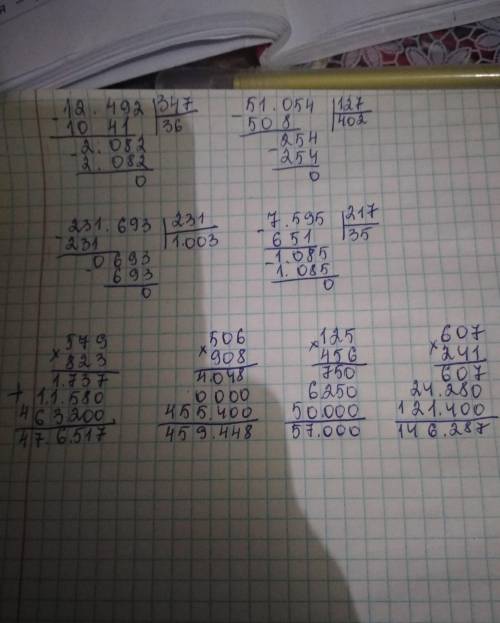 -12.492 |347
10 41 |36
-2.082
2.082
0
-51.054 |127
508 |402
-254
254
0
-231.693 |231
231 |1.003
0693
-693
0
-7.595 |217
651 |35
-1.085
1.085
0
579
×823
1.737
+11.580
463200
476.517
506
×908
4.048
0000
455.400
459.448
125
×456
750
6250
50.000
57.000
607
×241
607
24.280
121.400
146.287